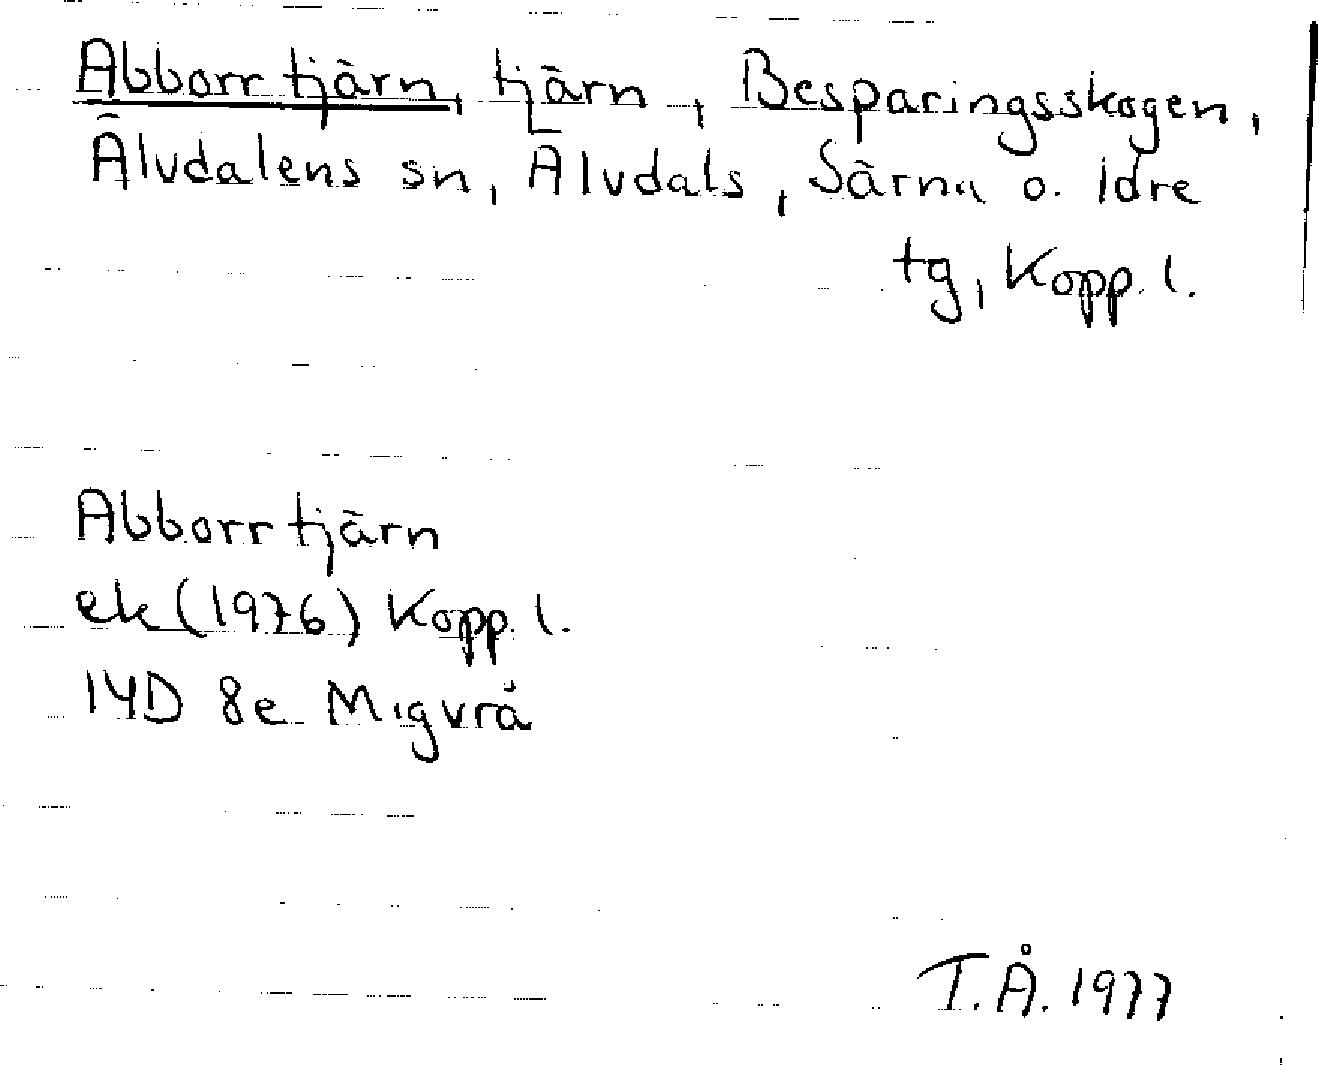 Abborrtjärn, tjärn, Besparingsskogen,
Älvdalens sn, Älvdals, Särna o. Idre
tg, Kopp. l.
Abborrtjärn
ek (1976) Kopp. l.
14D 8e Migvrå
T.Å. 1977